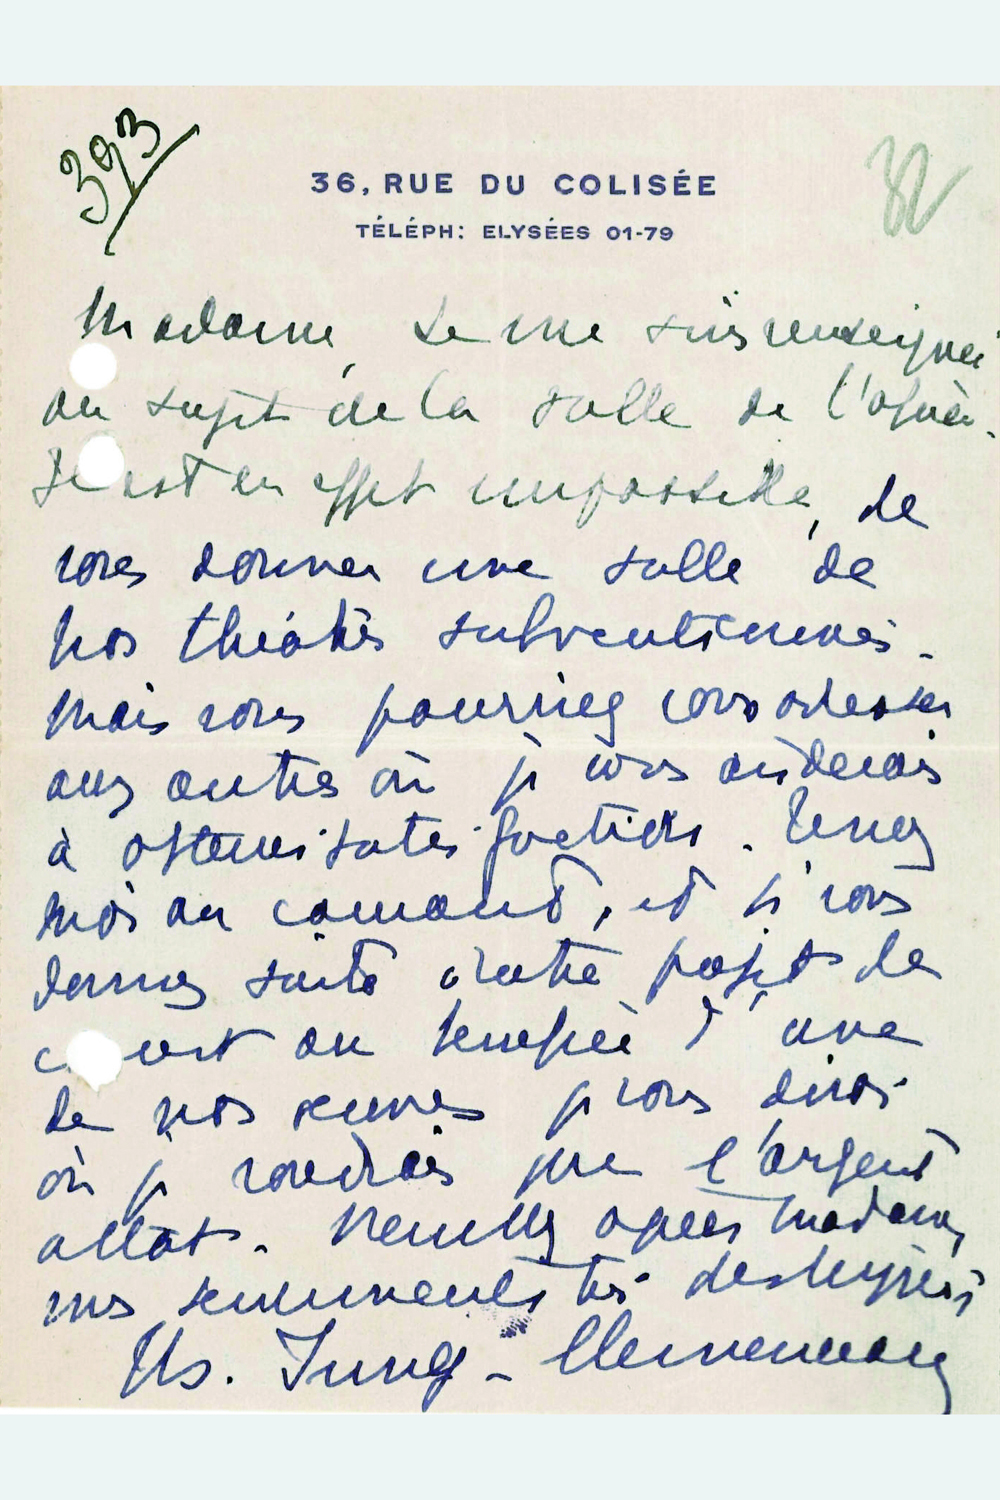 393
32
36, RUE DU COLISÉE
TÉLÉPH: ELYSÉES 01-79
Madame, Je me suis renseignée
au sujet de la salle de l'opéra.
Il est en effet impossible, de
vous donner une salle de
nos théâtres subventionnés.
Mais vous pourriez vous adresser
aux autres où je vous aiderais
à obtenir satisfaction. Tenez
moi au courant, et si vous
donnez suite à votre projet de
concert au bénéfice d'une
de nos œuvres je vous dirai
où je voudrais que l'argent
allât. Veuillez agréer Madame,
mes sentiments très distingués
Ths. Jung-Clemenceau